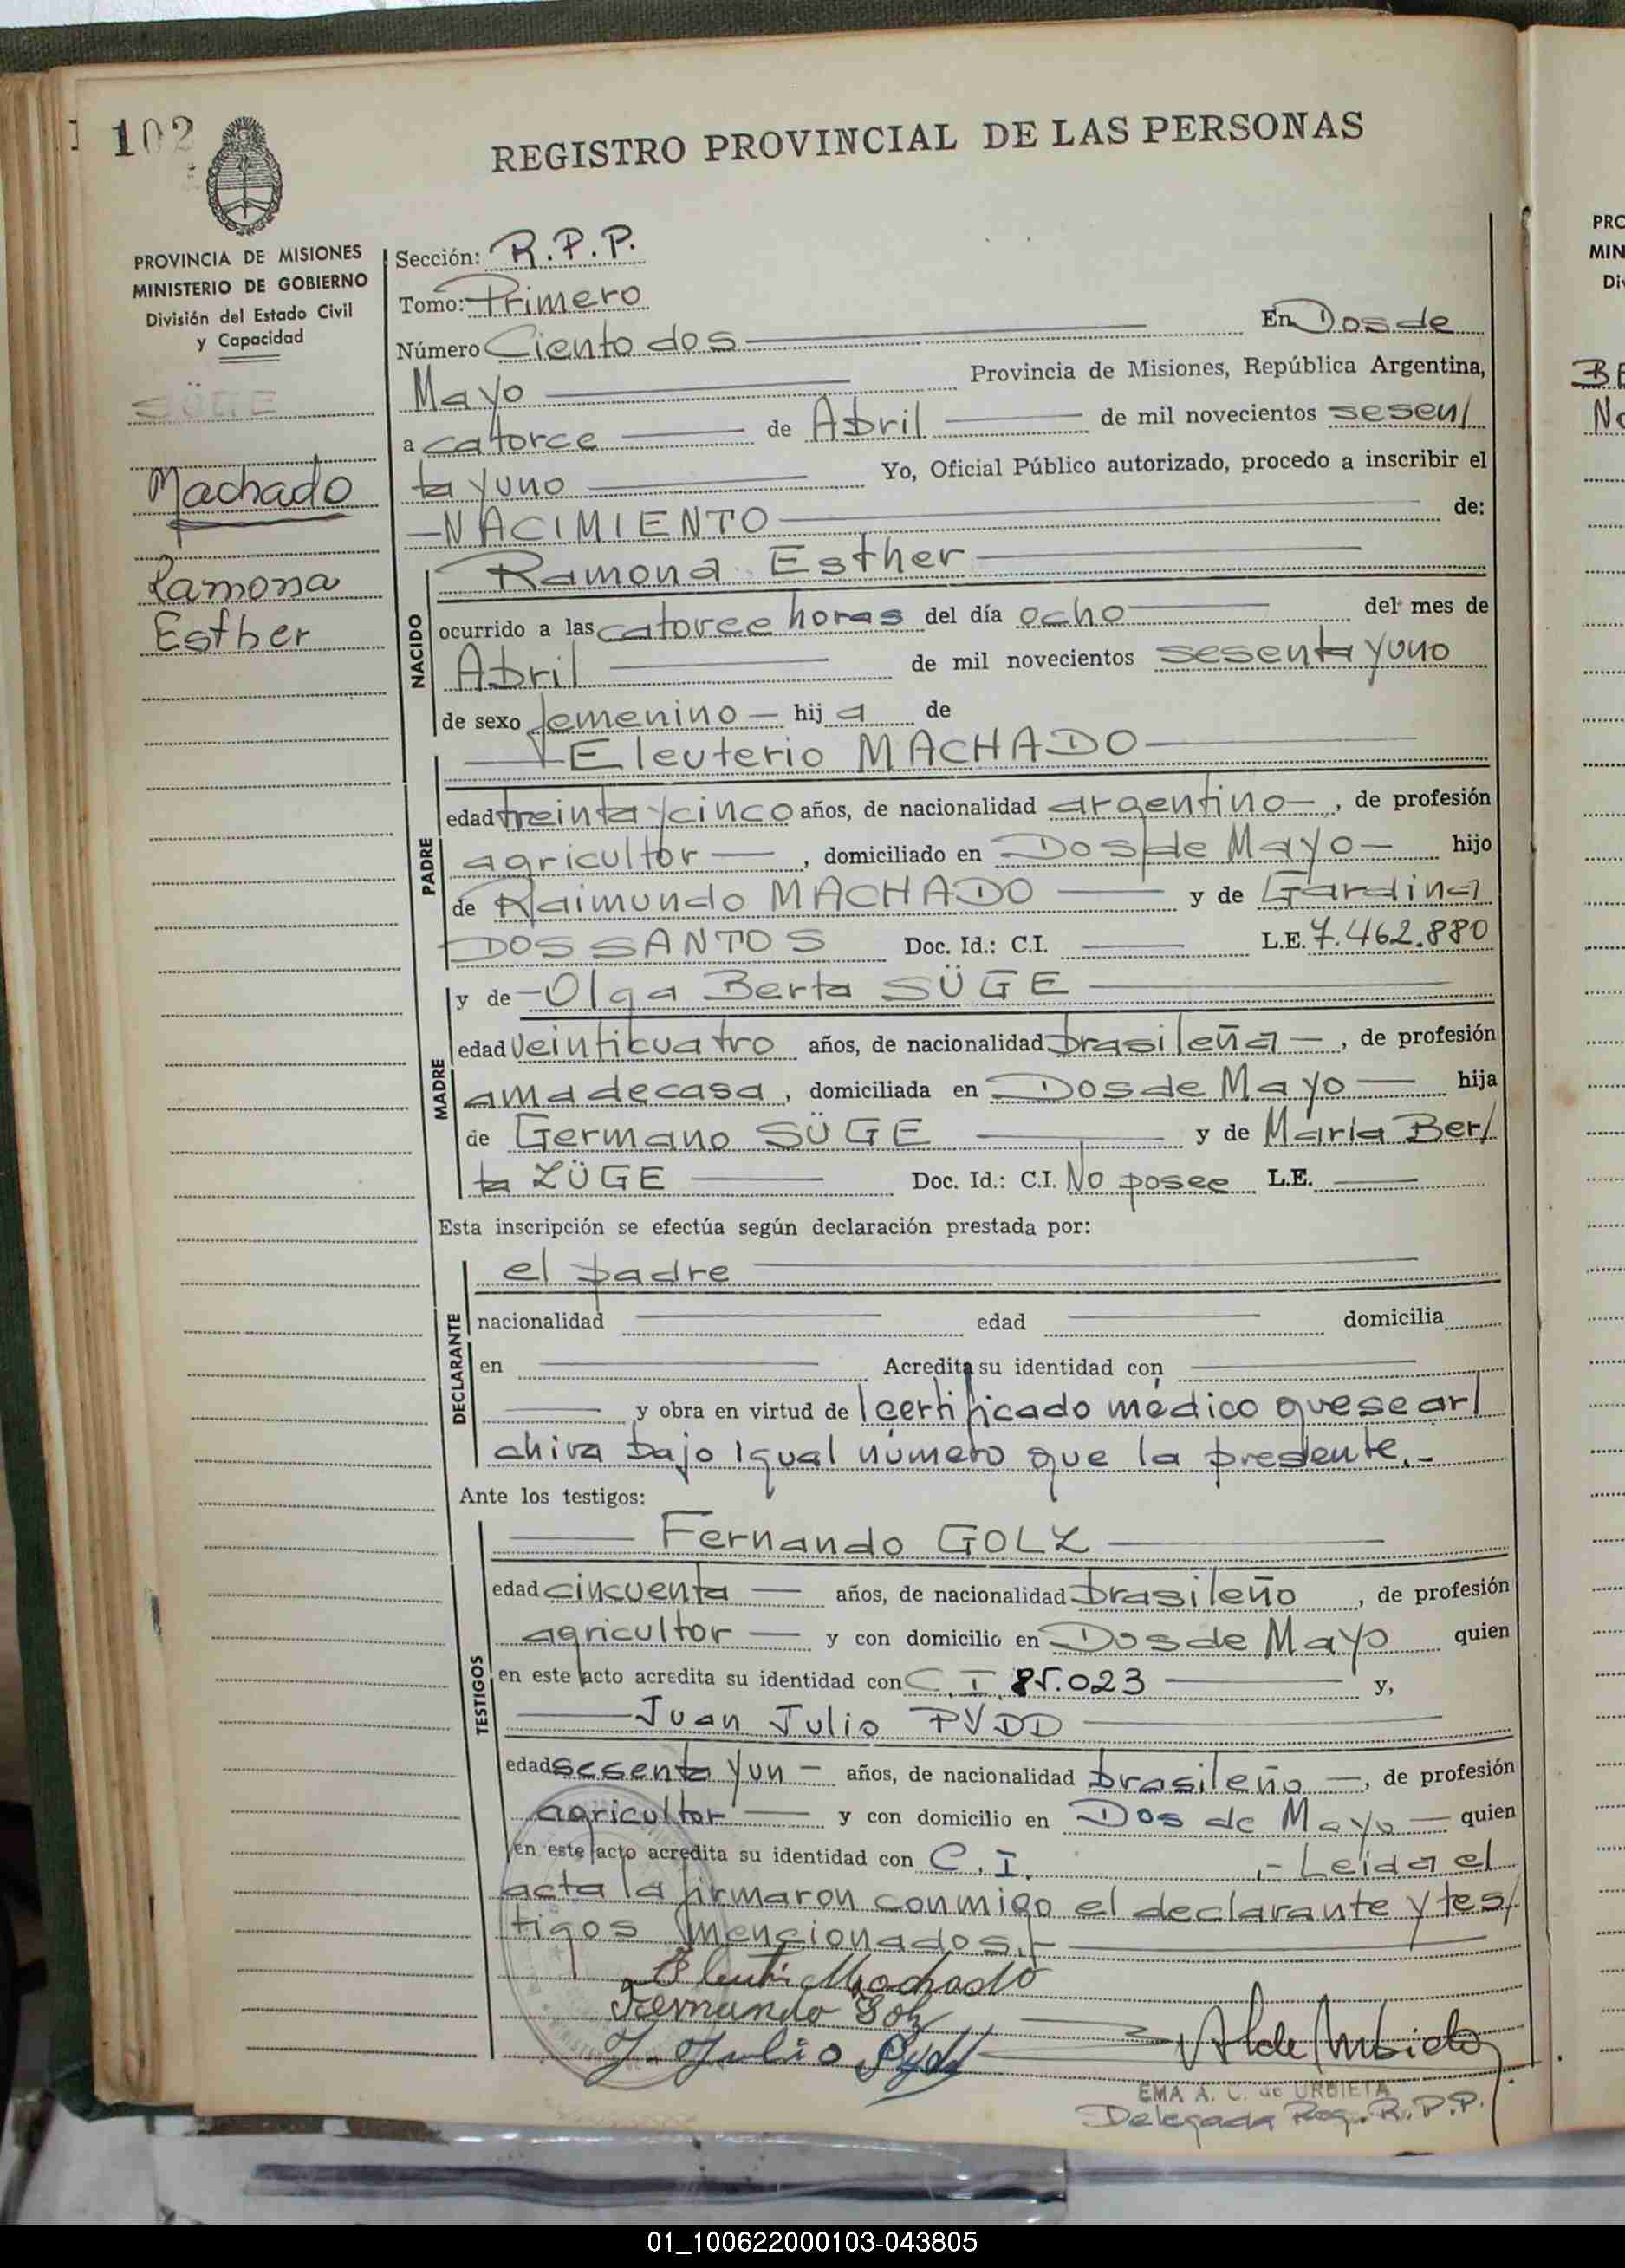 102
REGISTRO PROVINCIAL DE LAS PERSONAS
PROVINCIA DE MISIONES
MINISTERIO DE GOBIERNO
División del Estado Civil
y Capacidad
SÜGE
Machado
Ramona
Esther
Sección: R.P.P.
Tomo: Primero
Número Ciento dos En Dos de
Mayo Provincia de Misiones, República Argentina,
a catorce de Abril de mil novecientos sesen/
ta y uno Yo, Oficial Público autorizado, procedo a inscribir el
NACIMIENTO de:
NACIDO
Ramona Esther
ocurrido a las catorce horas del día ocho del mes de
Abril de mil novecientos sesenta y uno
de sexo femenino hija de
PADRE
Eleuterio MACHADO
edad treinta y cinco años, de nacionalidad argentino, de profesión
agricultor, domiciliado en Dos de Mayo hijo
de Raimundo MACHADO y de Gardina
DOS SANTOS Doc. Id.: C.I. L.E. 7.462.880
MADRE
y de Olga Berta SÜGE
edad veinticuatro años, de nacionalidad brasileña, de profesión
ama de casa, domiciliada en Dos de Mayo hija
de Germano SÜGE y de María Ber/
ta ZÜGE Doc. Id.: C.I. No posee L.E.
Esta inscripción se efectúa según declaración prestada por:
DECLARANTE
el padre
nacionalidad edad domicilia
en Acredita su identidad con
y obra en virtud de l certificado médico que se ar/
chiva bajo igual número que la presente.-
Ante los testigos:
TESTIGOS
Fernando GOLZ
edad cincuenta años, de nacionalidad brasileño, de profesión
agricultor y con domicilio en Dos de Mayo quien
en este acto acredita su identidad con C.I. 85.023 y,
Juan Julio PYDD
edad sesenta y un años, de nacionalidad brasileño, de profesión
agricultor y con domicilio en Dos de Mayo quien
en este acto acredita su identidad con C.I. .- Leída el
acta la firmaron conmigo el declarante y tes/
tigos mencionados.-
Machado
Fernando Golz
J. Julio Pydd
EMA A. C. de URBIETA
Delegada Reg. R.P.P.
PRO
MIN
Di
BE
No
01_100622000103-043805